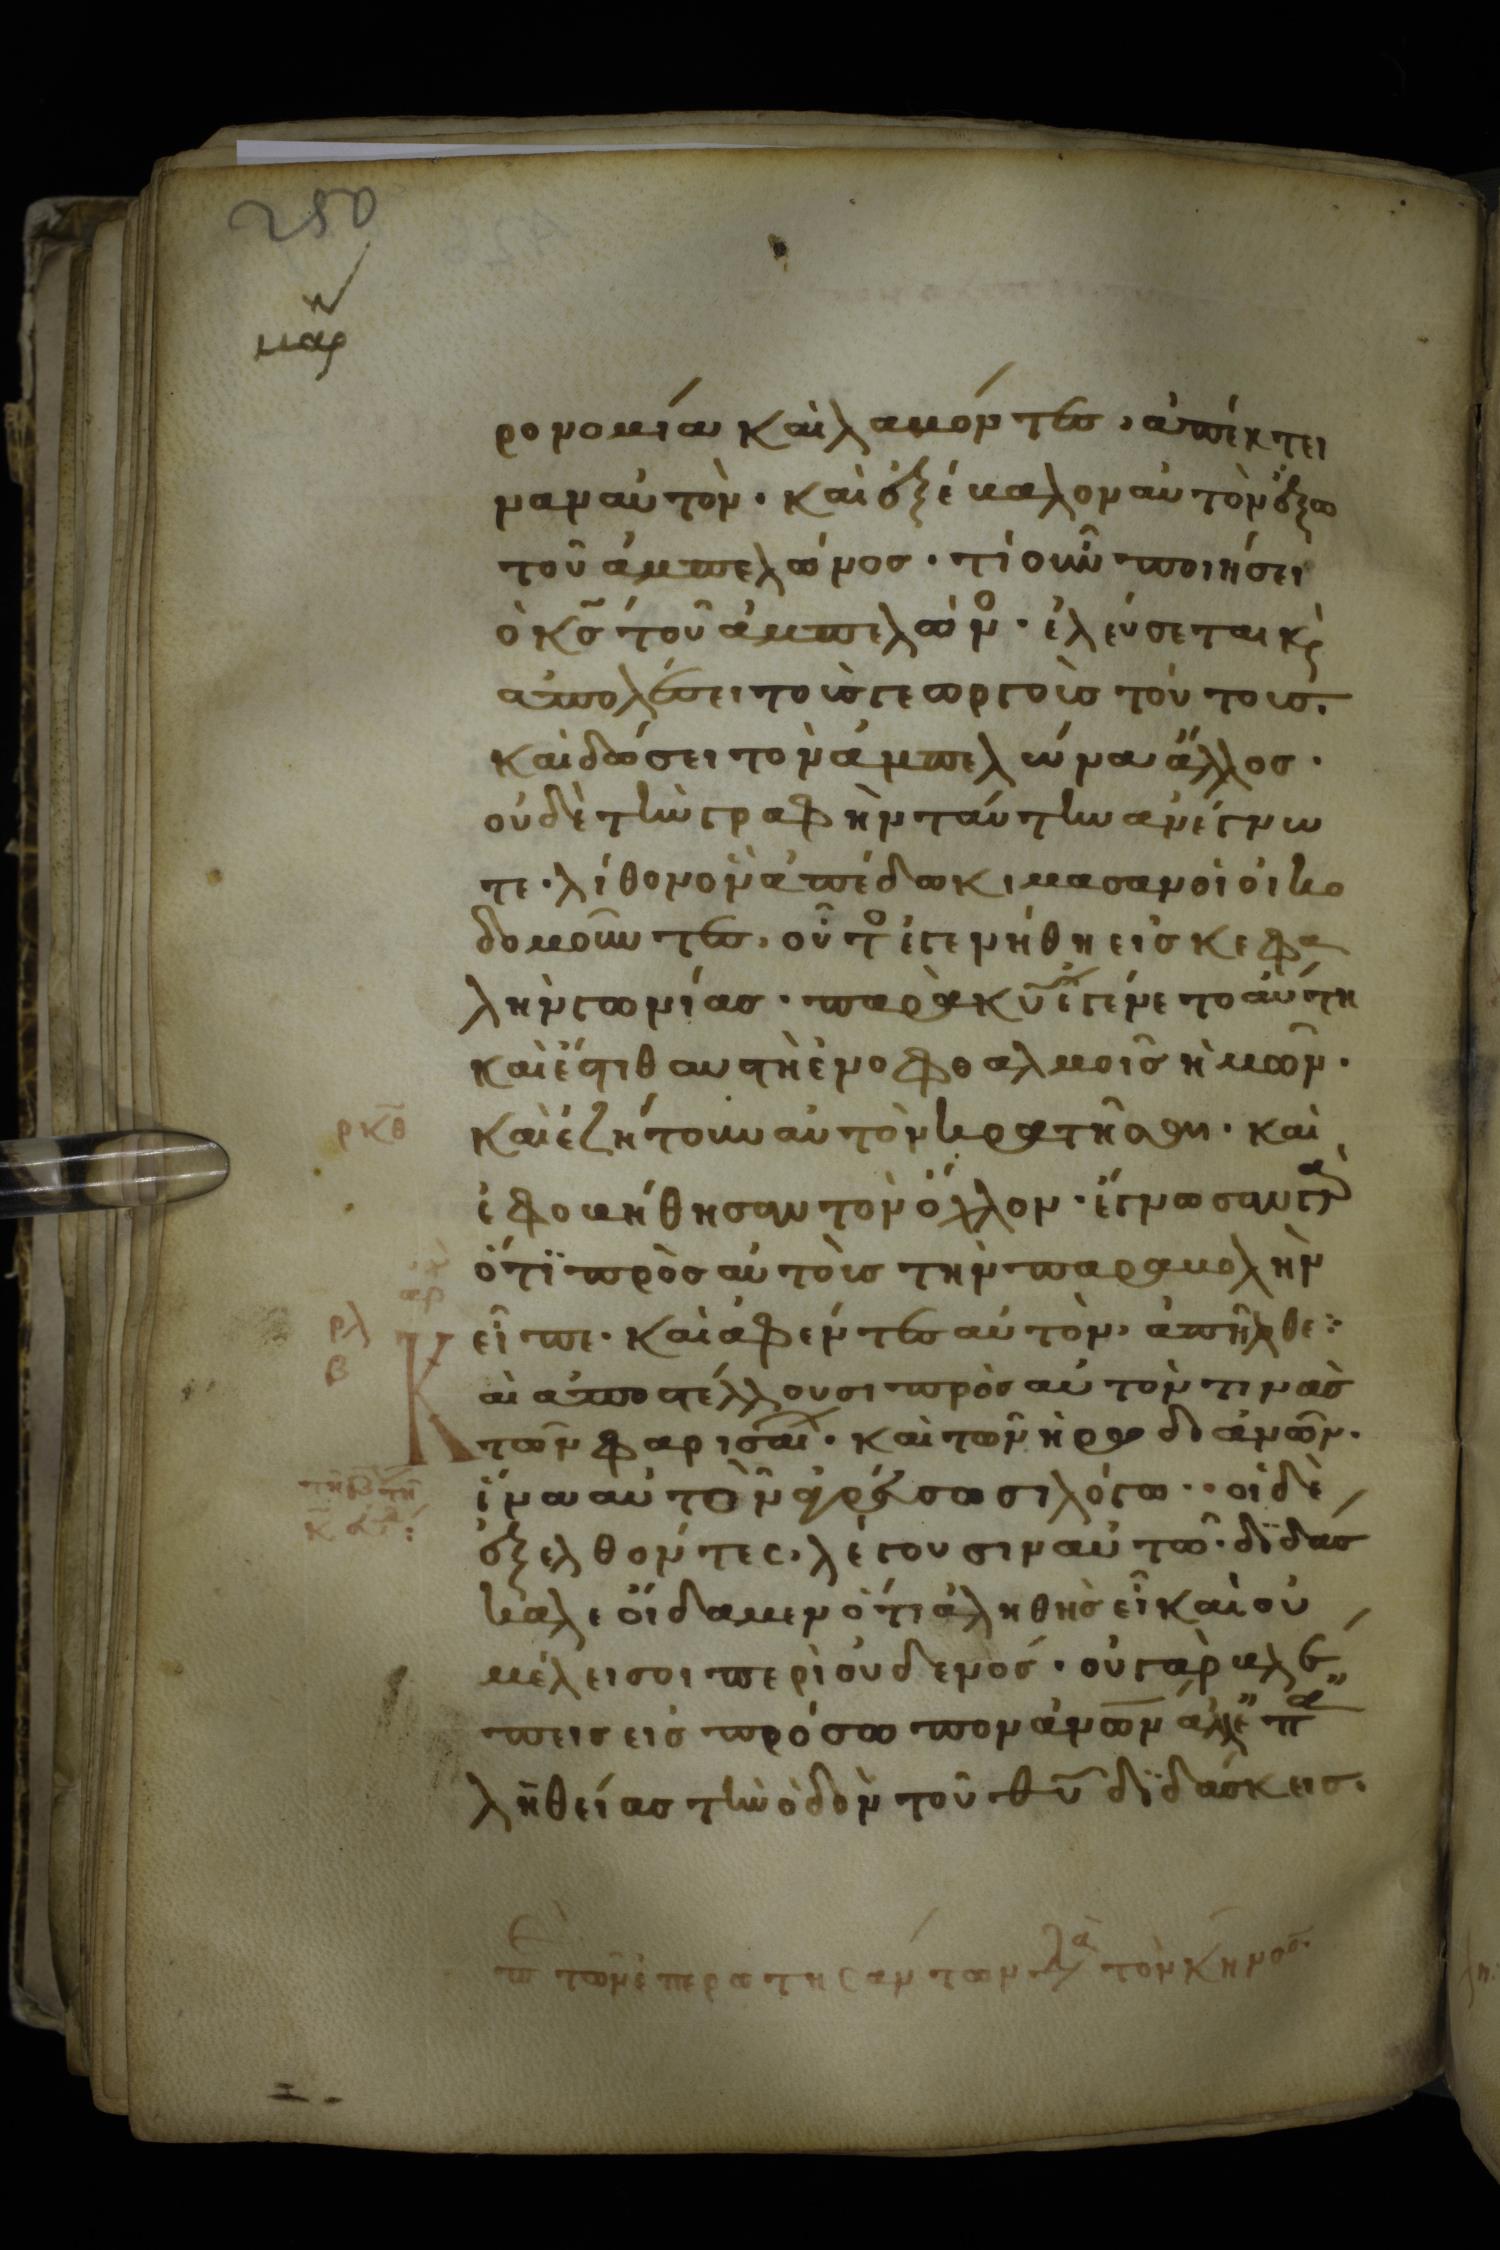 250
μαρ
ρονομία καὶ λαβόντες, ἀπέκτει
ναν αὐτὸν. καὶ ἐξέβαλον αὐτὸν ἔξω
τοῦ ἀμπελῶνος. τί οὖν ποιήσει
ὁ κς̃ τοῦ ἀμπελῶν. ἐλεύσεται κ
ἀπολέσει τοὺς γεωργοὺς τούτους.
καὶ δώσει τὸν ἀμπελώνα ἄλλοσ.
οὐδὲ τὴν γραφὴν ταύτην ἀνέγνω
τε. λίθον ὃν ἀπέδωκιμασαν οἱ οἰκο
δομοῦντες, οὗτο ἐγενήθη εἰς κεφα
λὴν γωνίας. παρὰ κῡ ἐγένετο αὕτη
καὶ ἔστι θαυστὴ ἐν ὀφθαλμοῖς ἡμῶν.
ρκθ
καὶ ἐζήτουν αὐτὸν κρατῆσαι. καὶ
ἐφοβήθησαν τὸν ὄχλον. ἔγνωσαν γὰ
ὅτϊ πρὸς αὐτοὺς τὴν παραβολὴν
αρ
ρλ
β
εἶπε. καὶ ἀφέντες αὐτὸν, ἀπῆλθε:
Κ
αὶ ἀποστέλλουσι πρὸς αὐτὸν τινὰς
τῶν φαρισαί. καὶ τῶν ἡρωδιάνῶν.
ἵνα αὐτὸν ἀγρεύσωσι λόγω. οἱ δὲ
ἐξελθόντες, λέγουσιν αὐτῶ. διδάσ
καλε οἴδαμεν ὅτι ἀληθὴς εἶ καὶ οὐ
μέλει σοι περὶ οὐδενός. οὐ γὰρ βλέ
πεις εἰς πρόσωπον ἀνῶν ἀλλ ἐπ α
ληθείας τὴν ὁδὸν τοῦ θῡ διδάσκεις.
τῶν ἐπερωτησάντων τὸν κῆνσο